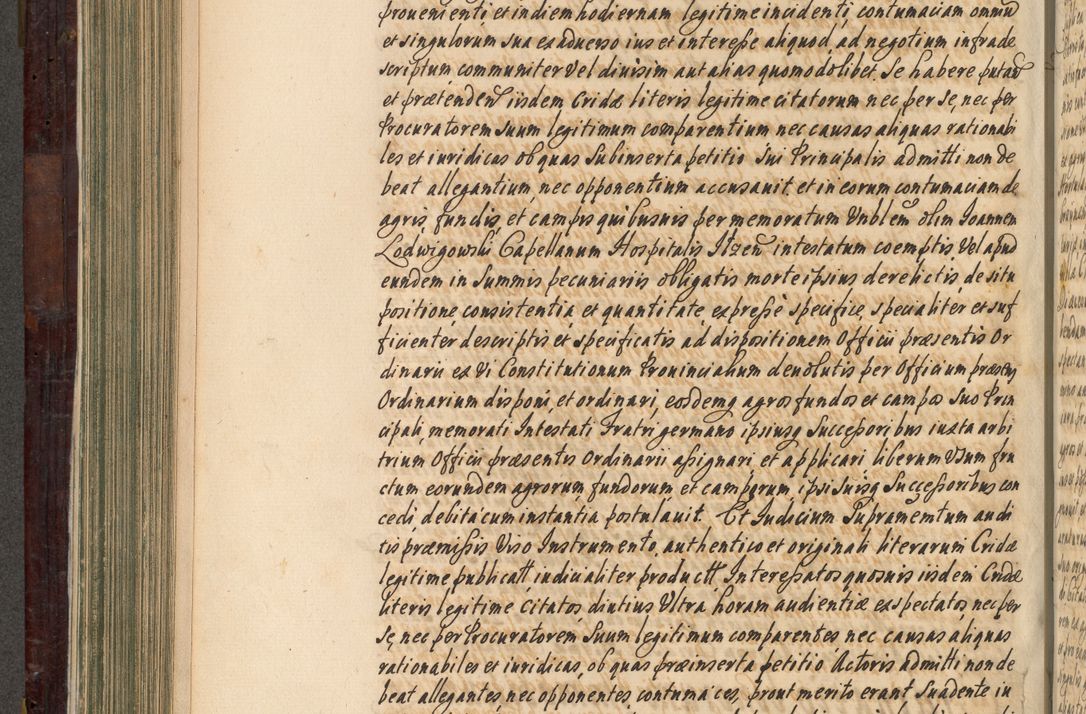 provenienti et in diem hodiernam legitime incidenti, contumaciam omniū
et singulorum sua ex adverso ius et interesse aliquod ad negotium infrade
scriptum communiter vel divisim aut alias quomodolibet se habere putan
et prætenden iisdem Cridæ literis legitime citatorum nec per se, nec per
Procuratorem suum legitimum comparentium nec causas aliquas rationabi
les et iuridicas ob quas subinserta petitio sui Principalis admitti non de
beat allegantium, nec opponentium accusavit et in eorum contumaciam de
agris, fundis, et campis quibusvis per memoratum Vnblem olim Joannem
Lodwigowski Capellanum Hospitalis Itzen intestatum coemptis, vel apud
eundem in summis pecuniariis obligatis morte ipsius derelictis, de situ
positione, consistentia et quantitate expresse specifice, specialiter et suf
ficienter descriptis et specificatis ad dispositionem Officii præsentis Or
dinarii ex vi Constitutionum Provincialium devolutis per Officium præsens
Ordinarium disponi, et ordinari, eosdemq agros fundos et campos suo Prin
cipali, memorati Intestati Fratri germano ipsiusq Successoribus iuxta arbi
trium Officii præsentis Ordinarii assignari et applicari liberum usum fru
ctum eorundem agrorum fundorum et camporum, ipsi suisq Successoribus con
cedi, debita cum instantia postulavit. Et Iudicium Supramemtum audi
tis præmissis viso Instrumento, authentico et originali literarum Cridæ
legitime publicatt iudicialiter productt, Interessatos quosvis iisdem Cridæ
literis legitime Citatos, diutius ultra horam audientiæ expectatos, nec per
se, nec per Procuratorem suum legitimum comparentes, nec causas aliquas
rationabiles et iuridicas, ob quas præinserta petitio Actoris admitti non de
beat allegantes, nec opponentes contumaces, prout merito erant suadente iu